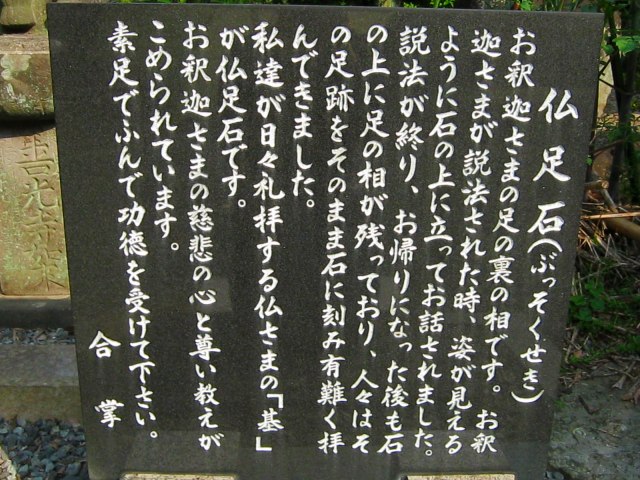 仏足石(ぶっそくせき)
お釈迦さまの足の裏の相です。 お釈
迦さまが説法された時、姿が見える
ように石の上に立ってお話されました。
説法が終り、 お帰りになった後も石
の上に足の相が残っており、人々はそ
の足跡をそのまま石に刻み有難く拝
んできました。
私達が日々礼拝する仏さまの「基」
が仏足石です。
お釈迦さまの慈悲の心と尊い教えが
こめられています。
素足でふんで功徳を受けて下さい。
合掌